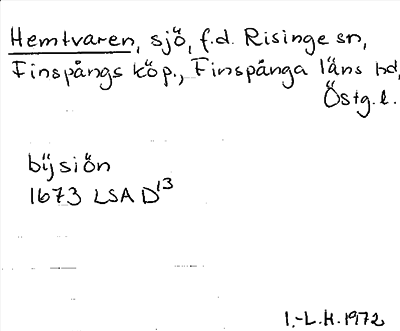 Hemtvaren, sjö, f.d. Risinge sn,
Finspångs köp., Finspånga läns hd,
Östg. l.
bijsiön
1673 LSA D13
I.-L.H. 1972